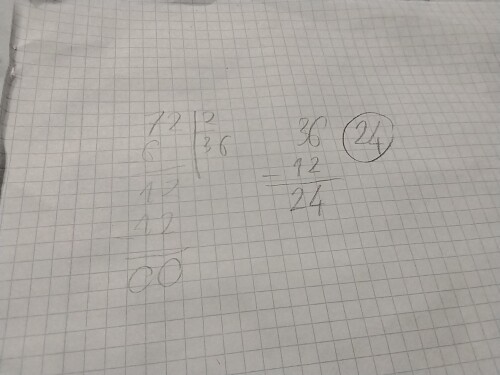 72 2
6 36
12
12
00
36 24
- 12
24